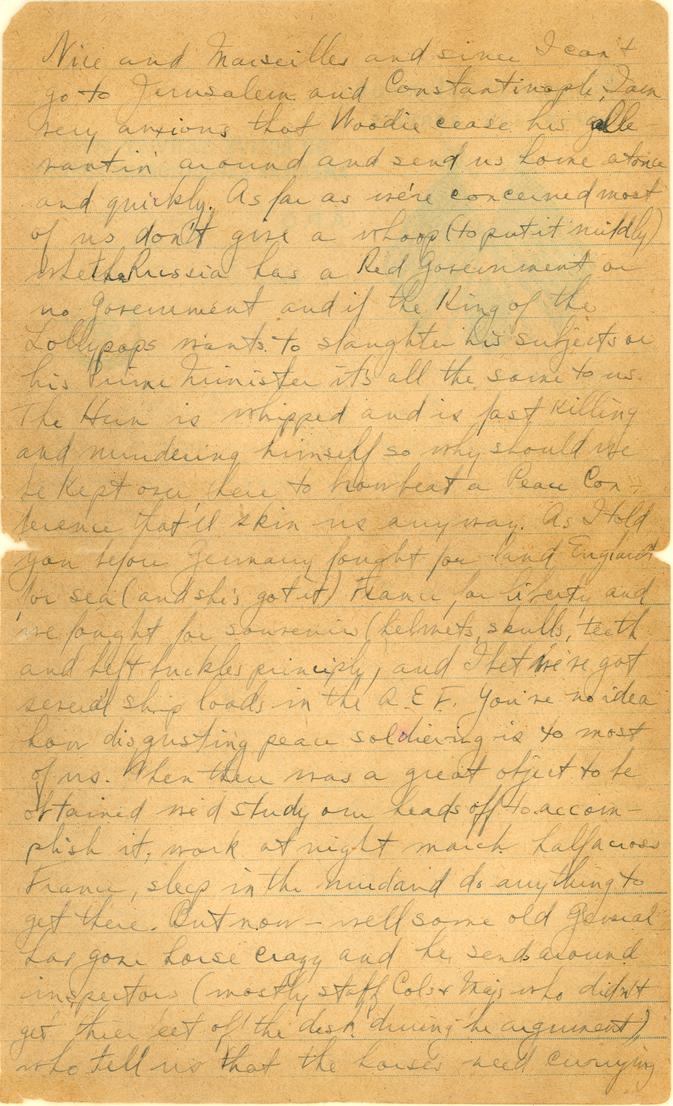 Nice and Marseilles and since I can't
go to Jerusalem and Constantinople, I am
very anxious that Woodie cease his galle-
vantin' around and send us home at once
and quickly. As far as we're concerned most
of us don't give a whoop (to put it mildly)
whether Russia has a Red Government or
no Government and if the King of the
Lollypops wants to slaughter his subjects or
his Prime Minister it's all the same to us.
The Hun is whipped and is fast killing
and murdering himself so why should we
be kept over here to browbeat a Peace Con-
ference that'll skin us anyway. As I told
you before Germany fought for land England
for sea (and she's got it) France for liberty and
we fought for souvenirs (helmets, skulls, teeth
and belt buckles principly, and I bet we've got
several ship loads in the A.E.F. You've no idea
how disgusting peace soldiering is to most
of us. When there was a great object to be
obtained we'd study our heads off to accom-
plish it, work at night march half across
France, sleep in the mud and do anything to
get there. But now - well some old General
has gone horse crazy and he sends around
inspectors (mostly staff Cols & Majs who didn't
get their feet off the desk during the argument)
who tell us that the horses need currying